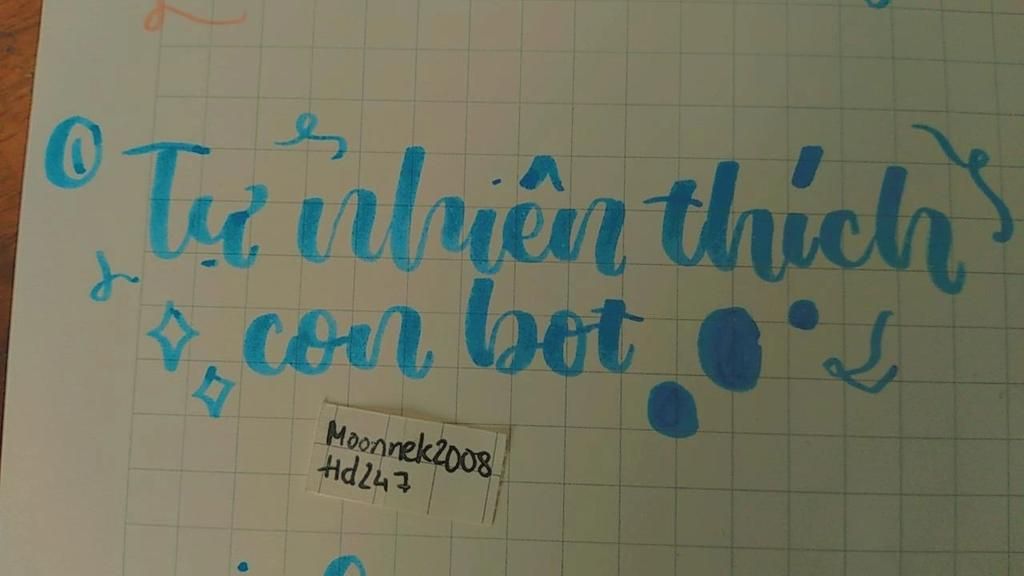 ① Tự nhiên thích
con bot
Moonnek2008
Hd247